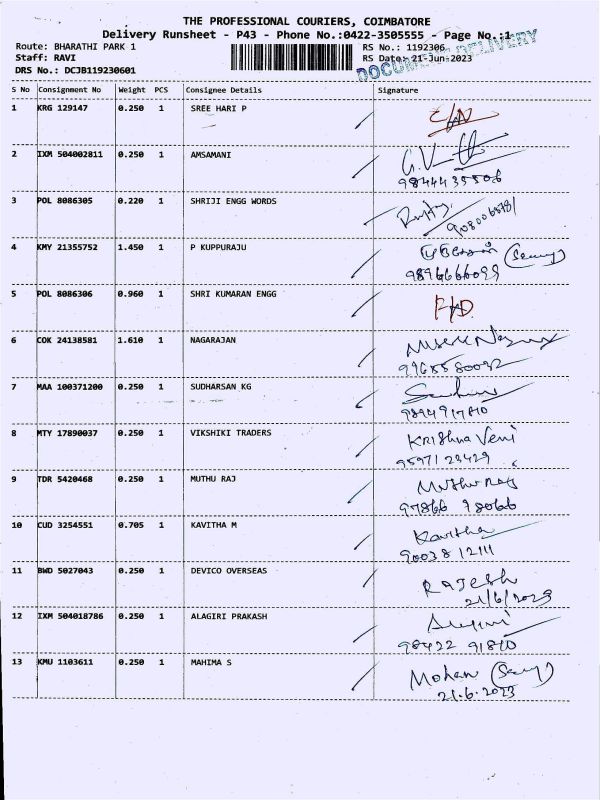 THE PROFESSIONAL COURIERS, COIMBATORE
Delivery Runsheet - P43 - Phone No.:0422-3505555 - Page No.:1
Route: BHARATHI PARK 1 RS No.: 1192306
Staff: RAVI RS Date: 21-Jun-2023
DOCUMENT DELIVERY
DRS No.: DCJB119230601
S No Consignment No Weight PCS Consignee Details Signature
1 KRG 129147 0.250 1 SREE HARI P
2 IXM 504002811 0.250 1 AMSAMANI
9844435506
3 POL 8086305 0.220 1 SHRIJI ENGG WORDS
4 KMY 21355752 1.450 1 P KUPPURAJU
5 POL 8086306 0.960 1 SHRI KUMARAN ENGG
6 COK 24138581 1.610 1 NAGARAJAN
7 MAA 100371200 0.250 1 SUDHARSAN KG
8 MTY 17890037 0.250 1 VIKSHIKI TRADERS Krishna Veni
9597123429
9 TDR 5420468 0.250 1 MUTHU RAJ Muthu Raj
97866 98066
10 CUD 3254551 0.705 1 KAVITHA M Kavitha
90038 12111
11 BWD 5027043 0.250 1 DEVICO OVERSEAS RAJESH
21/6/2023
12 IXM 504018786 0.250 1 ALAGIRI PRAKASH
98422 91840
13 KMU 1103611 0.250 1 MAHIMA S Mohan
21.6.2023